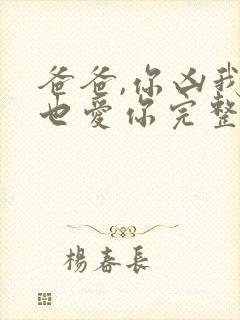 爸爸,你凶我
也爱你完整
杨春長